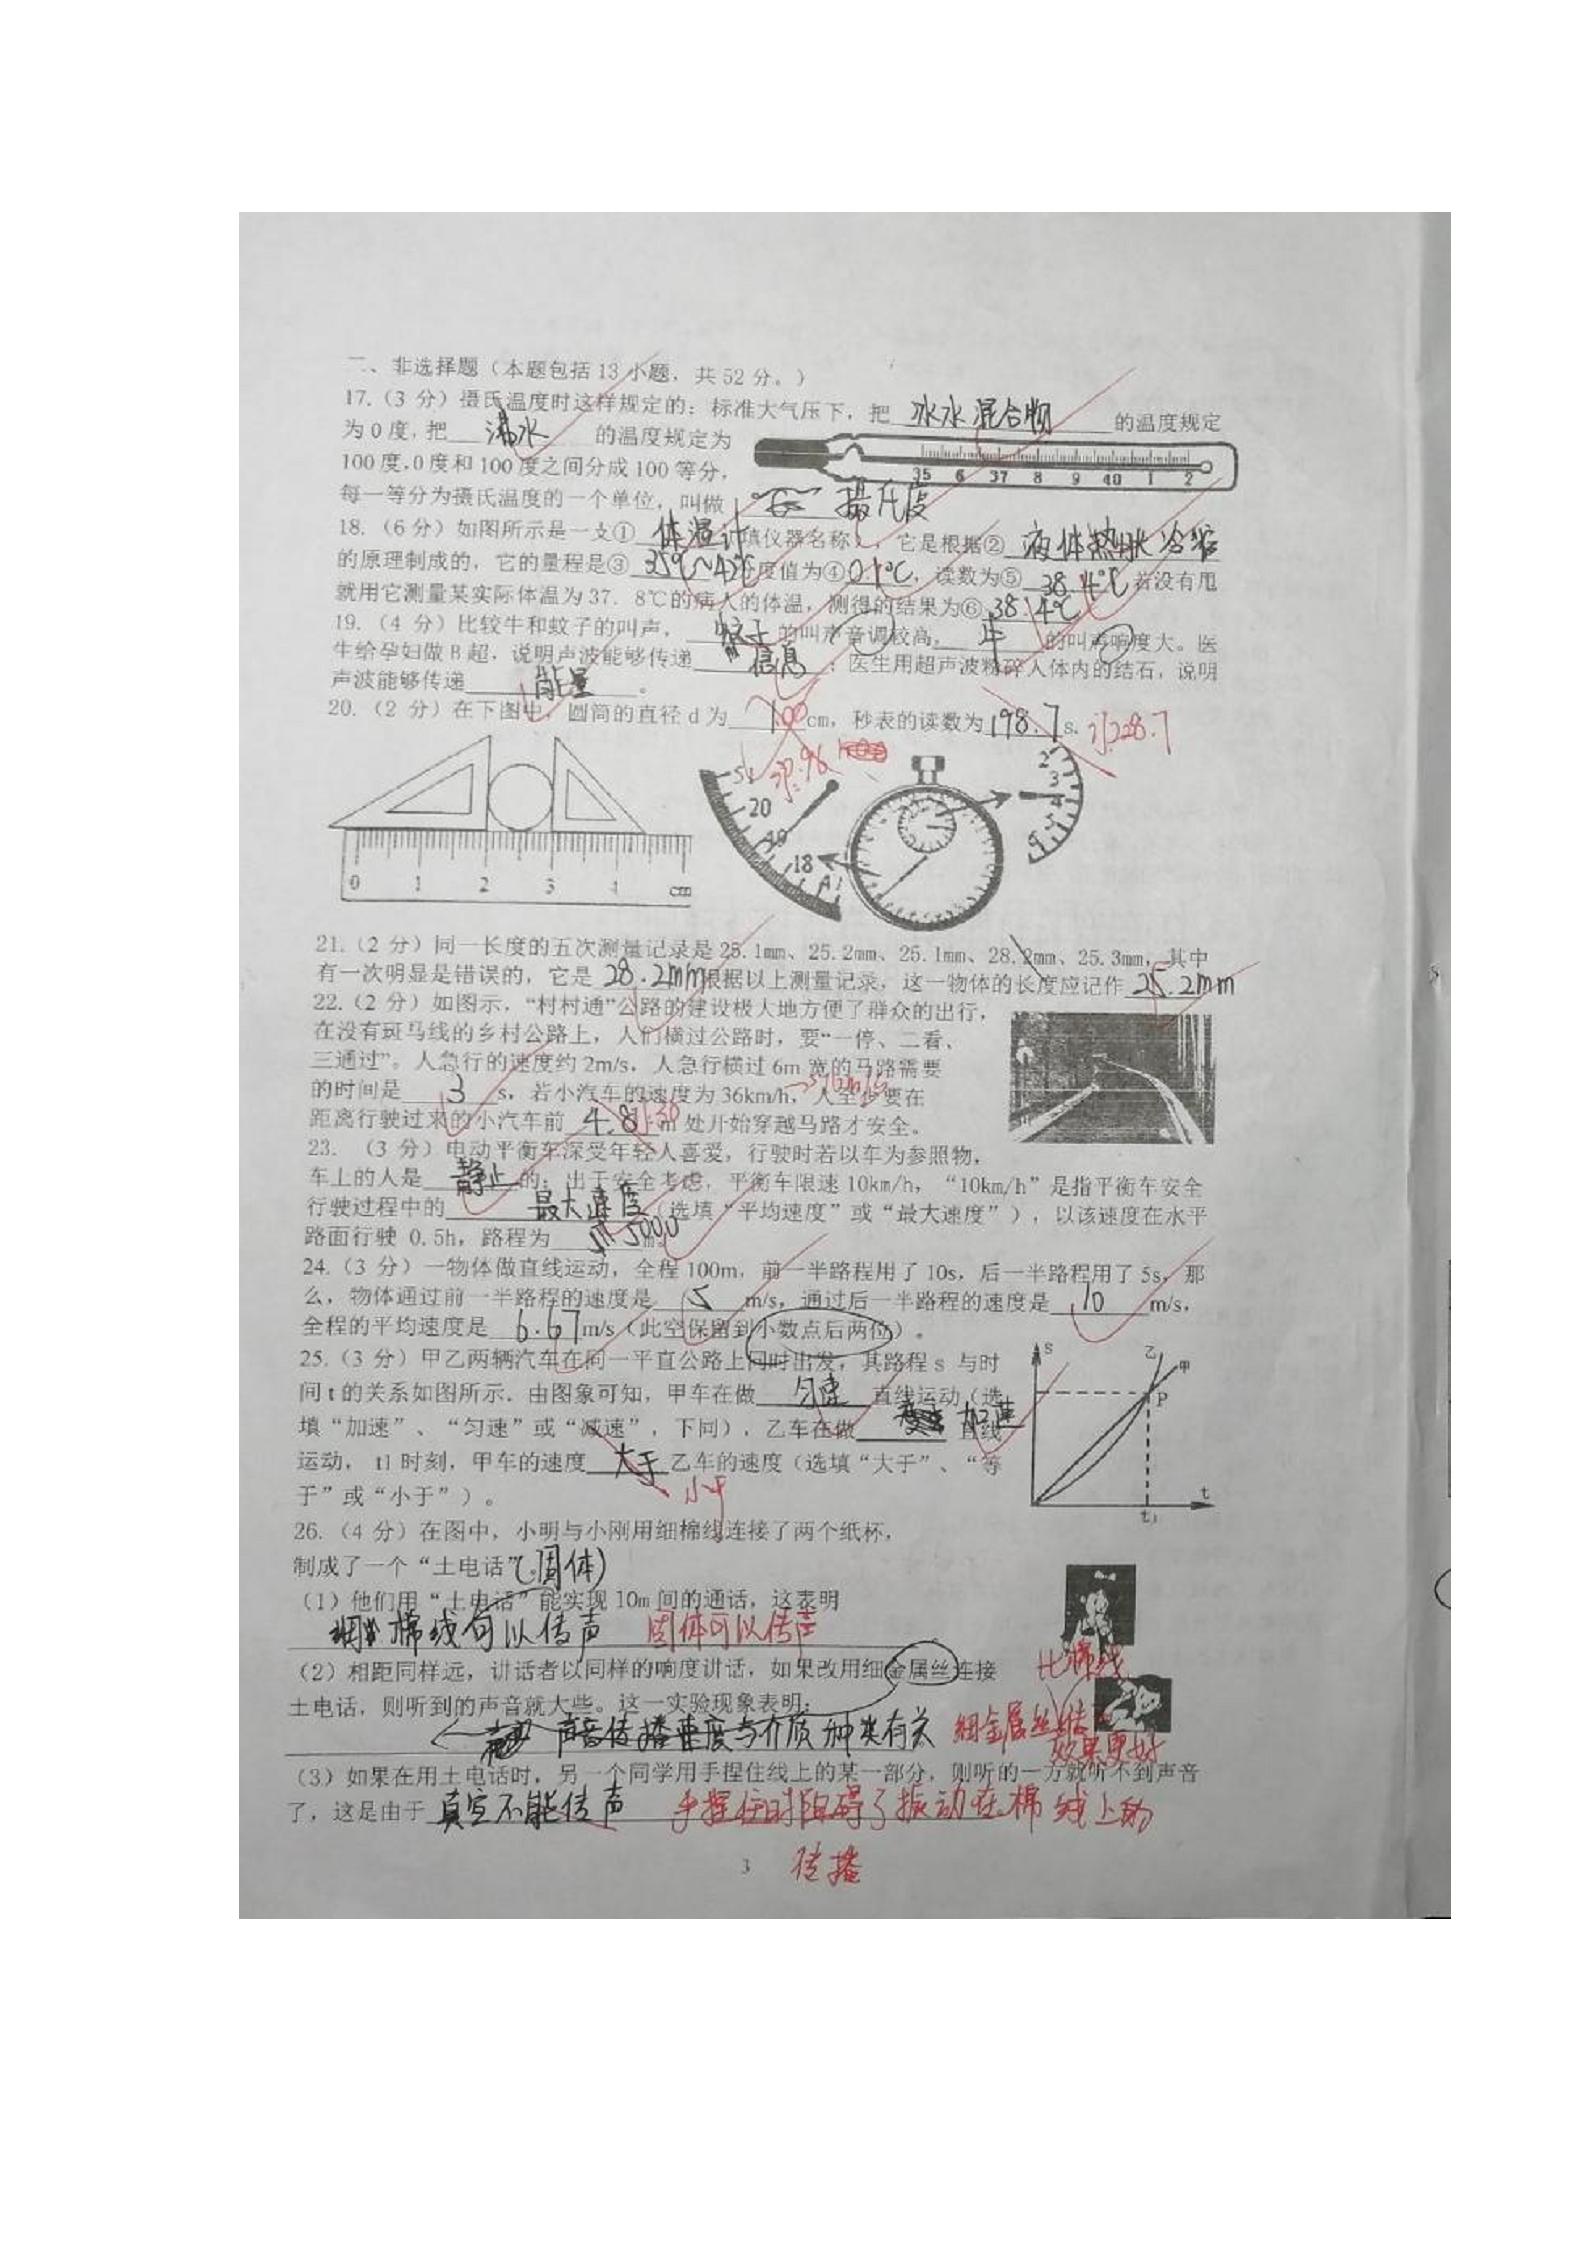 二、非选择题（本题包括13小题，共52分。）
17.（3 分）摄氏温度时这样规定的：标准大气压下，把 冰水混合物 的温度规定
为0度，把 沸水 的温度规定为
100度，0度和100度之间分成100等分，
每一等分为摄氏温度的一个单位，叫做 摄氏度
35 6 37 8 9 40 1 2
18.（6分）如图所示是一支① 体温计 填仪器名称），它是根据② 液体热胀冷缩
的原理制成的，它的量程是③ 35℃~42℃ 度值为④ 0.1℃，读数为⑤ 38.4℃ 若没有甩
就用它测量某实际体温为37.8℃的病人的体温，测得的结果为⑥ 38.4℃
19.（4 分）比较牛和蚊子的叫声， 蚊子 的叫声音调较高， 牛 的叫声响度大。医
生给孕妇做B超，说明声波能够传递 信息 ；医生用超声波粉碎人体内的结石，说明
声波能够传递 能量 。
20.（2 分）在下图中，圆筒的直径d为 1.00 cm，秒表的读数为 198.7 s. 228.7
20
18
2
3
4
0 1 2 3 4 cm
21.（2分）同一长度的五次测量记录是25.1mm、25.2mm、25.1mm、28.2mm、25.3mm，其中
有一次明显是错误的，它是 28.2mm 根据以上测量记录，这一物体的长度应记作 25.2mm
22.（2分）如图示，“村村通”公路的建设极大地方便了群众的出行，
在没有斑马线的乡村公路上，人们横过公路时，要“一停、二看、
三通过”。人急行的速度约2m/s，人急行横过6m宽的马路需要
的时间是 3 s，若小汽车的速度为36km/h，人至少要在
距离行驶过来的小汽车前 4.8 30 m 处开始穿越马路才安全。
23. （3分）电动平衡车深受年轻人喜爱，行驶时若以车为参照物，
车上的人是 静止 的；出于安全考虑，平衡车限速10km/h，“10km/h”是指平衡车安全
行驶过程中的 最大速度 （选填“平均速度”或“最大速度”），以该速度在水平
路面行驶 0.5h，路程为 5000 m。
24.（3 分）一物体做直线运动，全程100m，前一半路程用了10s，后一半路程用了5s，那
么，物体通过前一半路程的速度是 5 m/s，通过后一半路程的速度是 10 m/s，
全程的平均速度是 6.67 m/s（此空保留到小数点后两位）。
25.（3分）甲乙两辆汽车在同一平直公路上同时出发，其路程s 与时
间t的关系如图所示．由图象可知，甲车在做 匀速 直线运动（选
填“加速”、“匀速”或“减速”，下同），乙车在做 加速 直线
运动， t1时刻，甲车的速度 大于 乙车的速度（选填“大于”、“等
于”或“小于”）。 小于
s 乙 甲 P t t₁
26.（4分）在图中，小明与小刚用细棉线连接了两个纸杯，
制成了一个“土电话” （固体）
（1）他们用“土电话”能实现10m间的通话，这表明
棉线可以传声 固体可以传声
（2）相距同样远，讲话者以同样的响度讲话，如果改用细金属丝连接
土电话，则听到的声音就大些。这一实验现象表明：
声音传播速度与介质种类有关 细金属丝 比棉线 效果更好
（3）如果在用土电话时，另一个同学用手捏住线上的某一部分，则听的一方就听不到声音
了，这是由于 真空不能传声 手捏住时阻碍了振动在棉线上的
传播
3